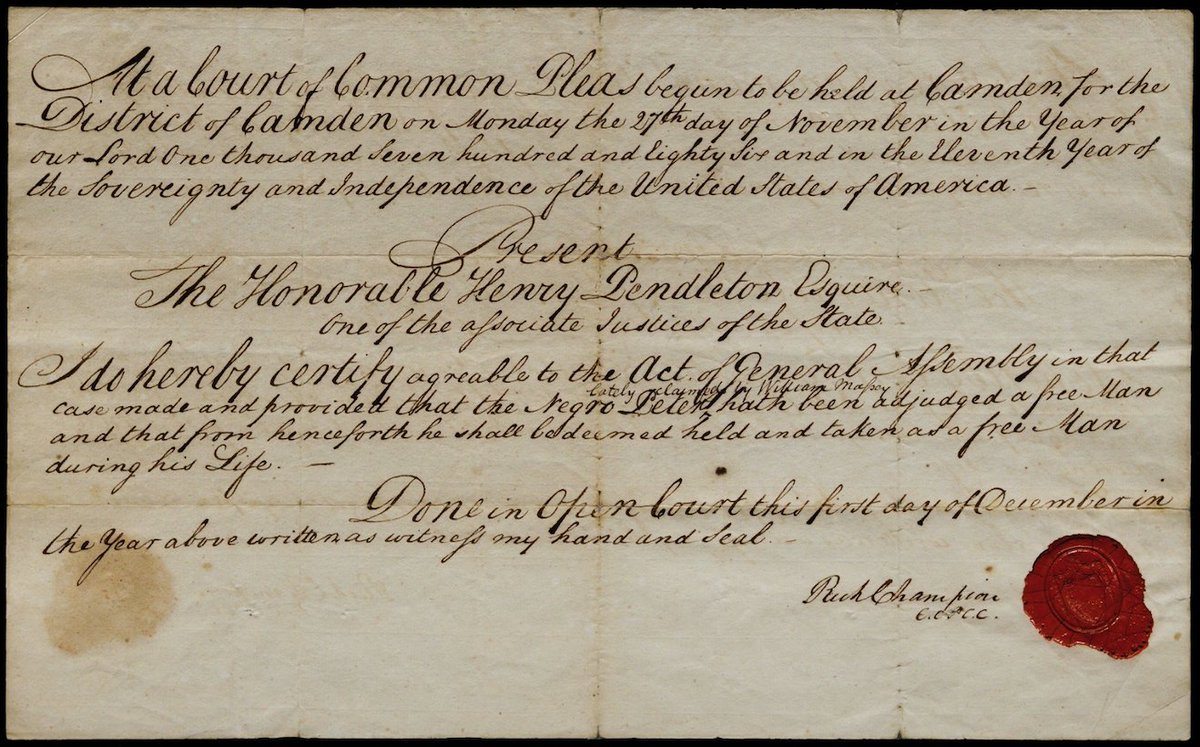 At a Court of Common Pleas begun to be held at Camden, for the
District of Camden on Monday the 27th day of November in the Year of
our Lord One thousand Seven hundred and Eighty Six and in the Eleventh Year of
the Sovereignty and Independence of the United States of America. –
Present
The Honorable Henry Pendleton Esquire. –
One of the associate Justices of the State
I do hereby certify agreable to the Act of General Assembly in that
lately reclaimed by William Massey
case made and provided that the Negro Peter hath been adjudged a free Man
and that from henceforth he shall be deemed held and taken as a free Man
during his Life. –
Done in Open Court this first day of December in
the Year above written as witness my hand and Seal. –
Rich Champion
C.C.P.C.C.